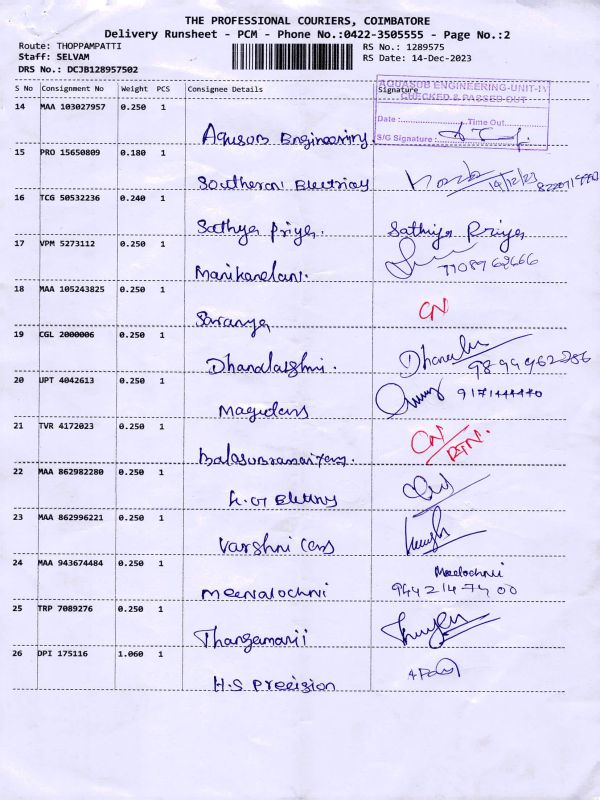 THE PROFESSIONAL COURIERS, COIMBATORE
Delivery Runsheet - PCM - Phone No.:0422-3505555 - Page No.:2
Route: THOPPAMPATTI RS No.: 1289575
Staff: SELVAM RS Date: 14-Dec-2023
DRS No.: DCJB128957502
S No Consignment No Weight PCS Consignee Details Signature
AQUASUB ENGINEERING-UNIT-IV
CHECKED & PASSED OUT
14 MAA 103027957 0.250 1
Date : Time Out
S/G Signature :
Aqusub Engineering
15 PRO 15650809 0.180 1
Southeran Electricay 14/12/23
16 TCG 50532236 0.240 1
Sathya Priya. Sathiya Priya
17 VPM 5273112 0.250 1
Manikandan. 7708962666
18 MAA 105243825 0.250 1
Saranya CN
19 CGL 2000006 0.250 1
Dhanalakshmi. 9894962286
20 UPT 4042613 0.250 1
21 TVR 4172023 0.250 1
CN/RTN.
22 MAA 862982280 0.250 1
23 MAA 862996221 0.250 1
Varshni Cars
24 MAA 943674484 0.250 1
Meenalochni 9442147400
25 TRP 7089276 0.250 1
Thangamarii
26 DPI 175116 1.060 1
H.S Precision